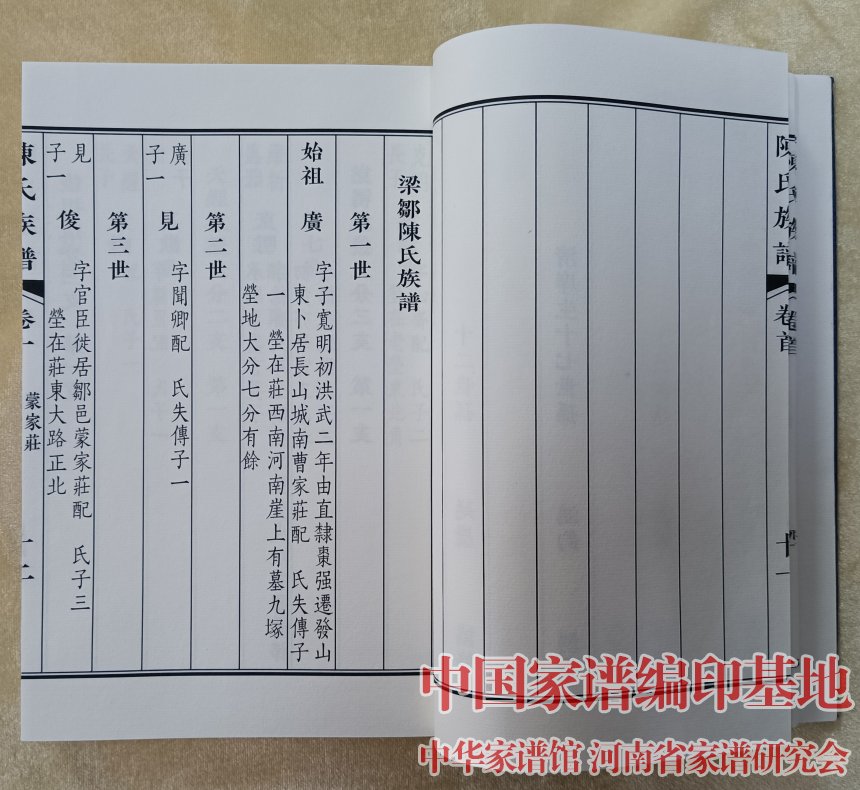 陳氏族譜
卷首
十一
梁鄒陳氏族譜
第一世
始祖 廣
字子寬明初洪武二年由直隸棗强遷發山
東卜居長山城南曹家莊配 氏失傳子
一 塋在莊西南河南崖上有墓九塚
塋地大分七分有餘
第二世
廣子一 見 字聞卿配 氏失傳子一
第三世
見子一 俊
字官臣徙居鄒邑蒙家莊配 氏子三
塋在莊東大路正北
陳氏族譜
卷一
蒙家莊
中国家谱编印基地
中华家谱馆 河南省家谱研究会